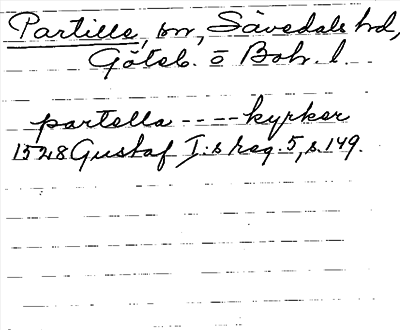 Partille, sn, Sävedals hd,
Göteb. o Boh. l.
partella ---- kyrker
1528 Gustaf I:s reg. 5, s. 149.